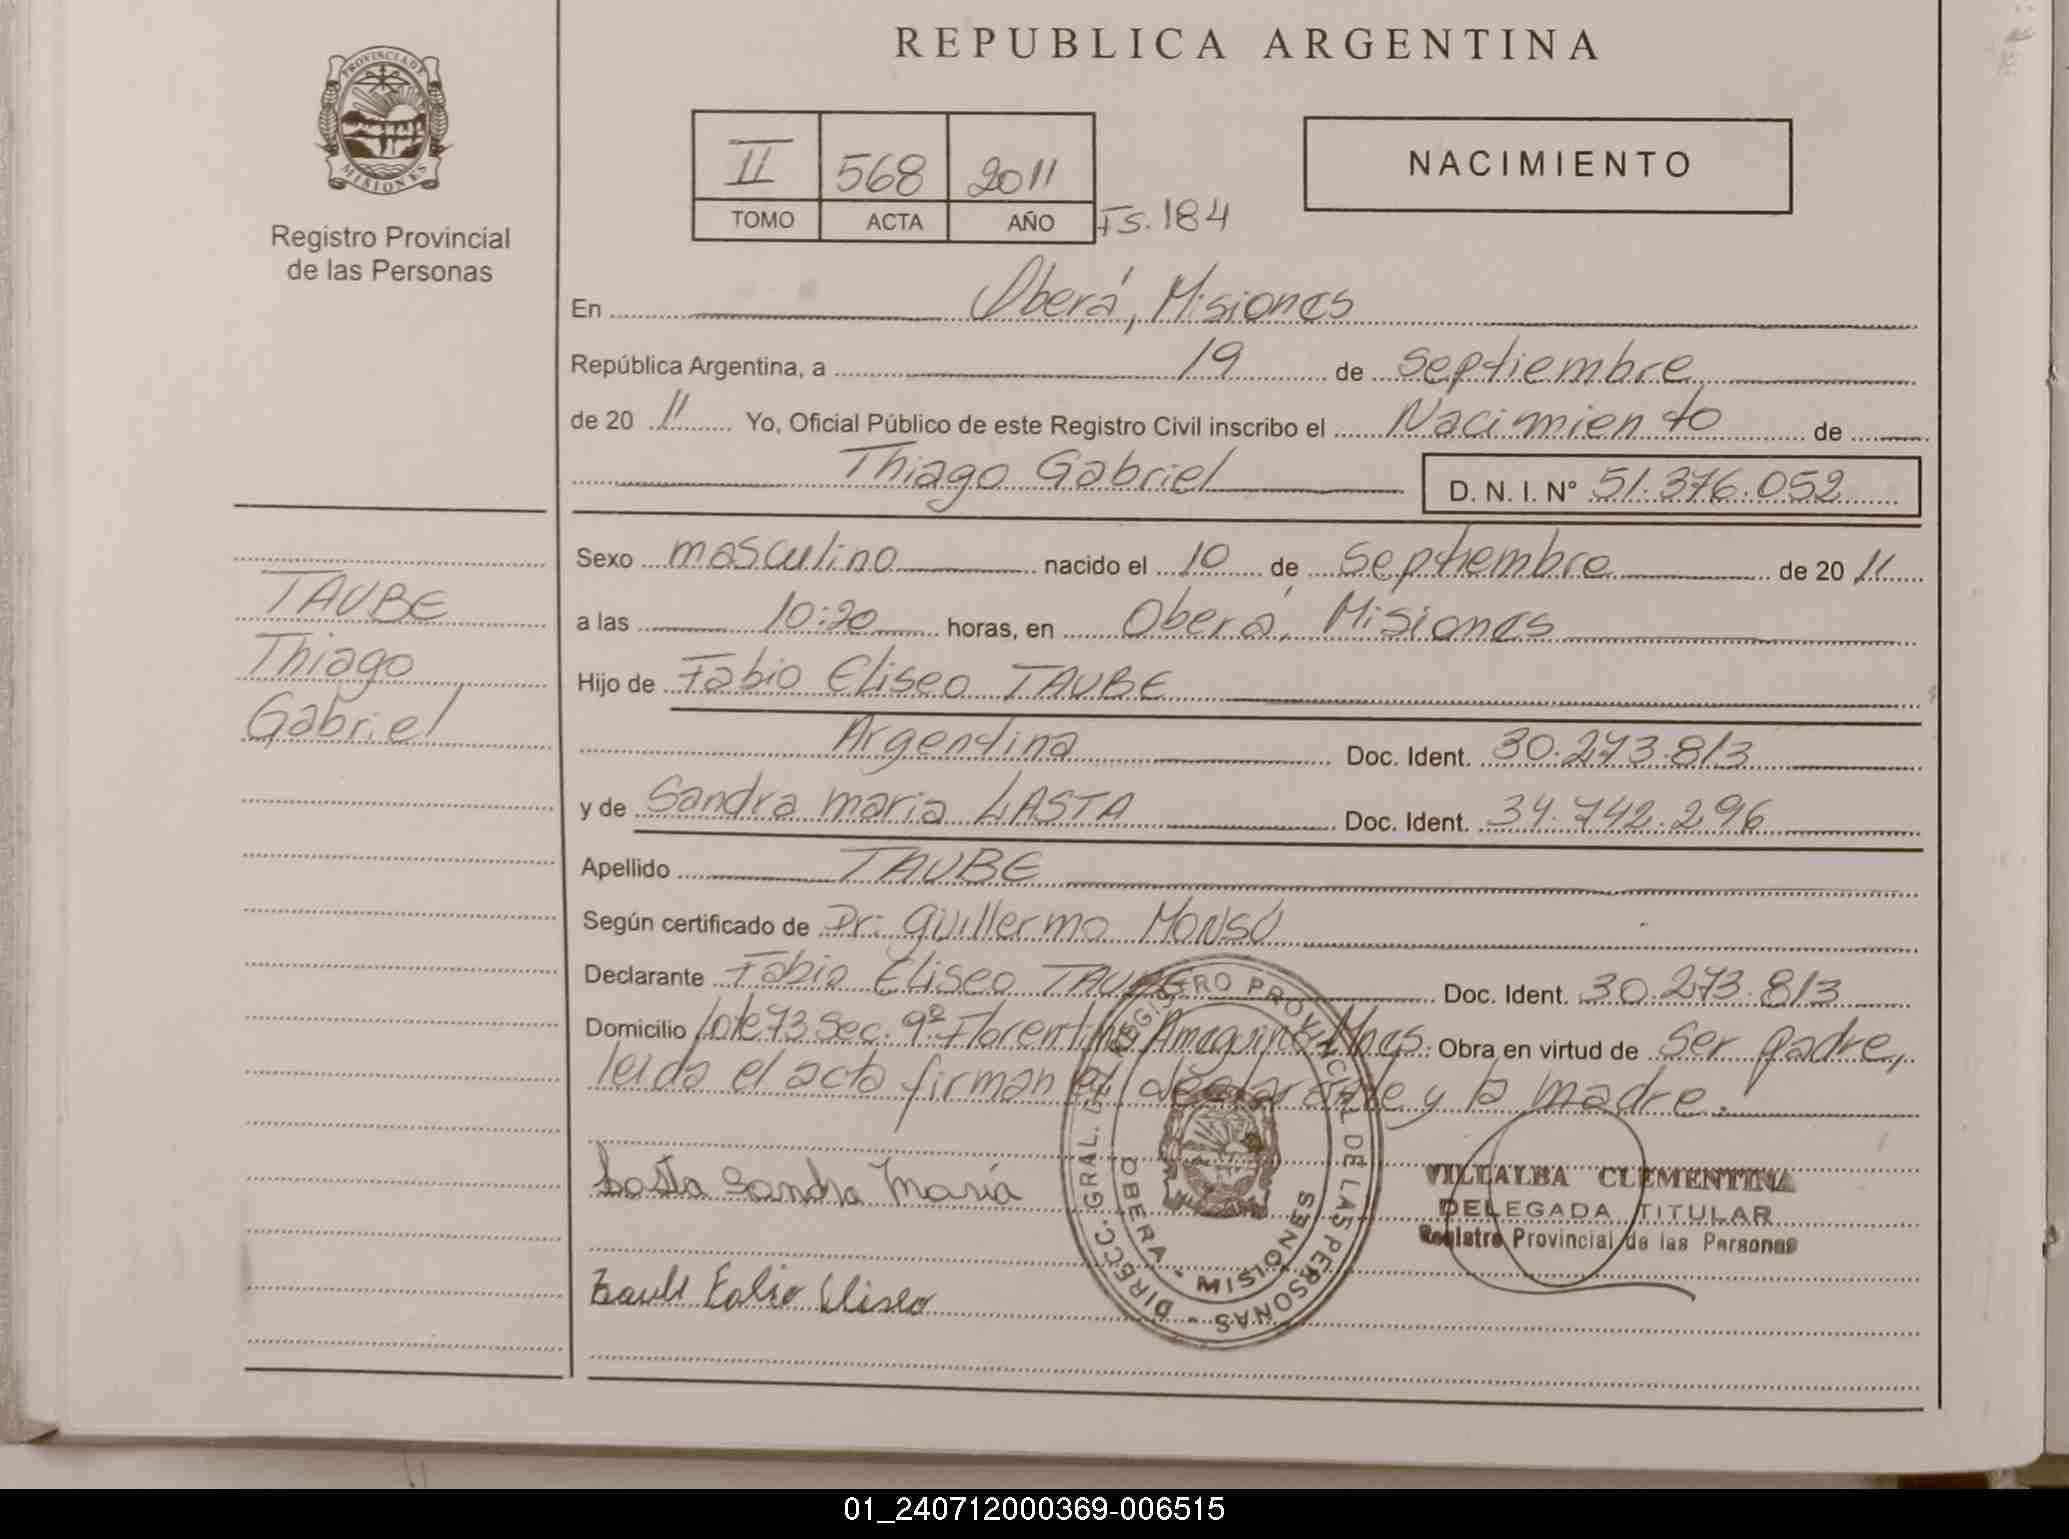 REPUBLICA ARGENTINA
PROVINCIA DE
MISIONES
Registro Provincial
de las Personas
II 568 2011
TOMO ACTA AÑO Fs. 184
NACIMIENTO
En Oberá, Misiones
República Argentina, a 19 de septiembre
de 20 11 Yo, Oficial Público de este Registro Civil inscribo el Nacimiento de
Thiago Gabriel D. N. I. N° 51.376.052
Sexo masculino nacido el 10 de septiembre de 20 11
a las 10:20 horas, en Oberá, Misiones
Hijo de Fabio Eliseo TAUBE
Argentina Doc. Ident. 30.273.813
y de Sandra maria LASTA Doc. Ident. 34.742.296
Apellido TAUBE
Según certificado de Dr: guillermo MONSÓ
Declarante Fabio Eliseo TAUBE Doc. Ident. 30.273.813
Domicilio lote 73 Sec. 9ª Florentino Ameguino Mnes. Obra en virtud de ser padre,
leida el acta firman el declarante y la madre.
TAUBE
Thiago
Gabriel
Lasta Sandra María
Taube Fabio Eliseo
DIRECC. GRAL. DEL REGISTRO PROVINCIAL DE LAS PERSONAS -
OBERA - MISIONES
VILLALBA CLEMENTINA
DELEGADA TITULAR
Registro Provincial de las Personas
01_240712000369-006515